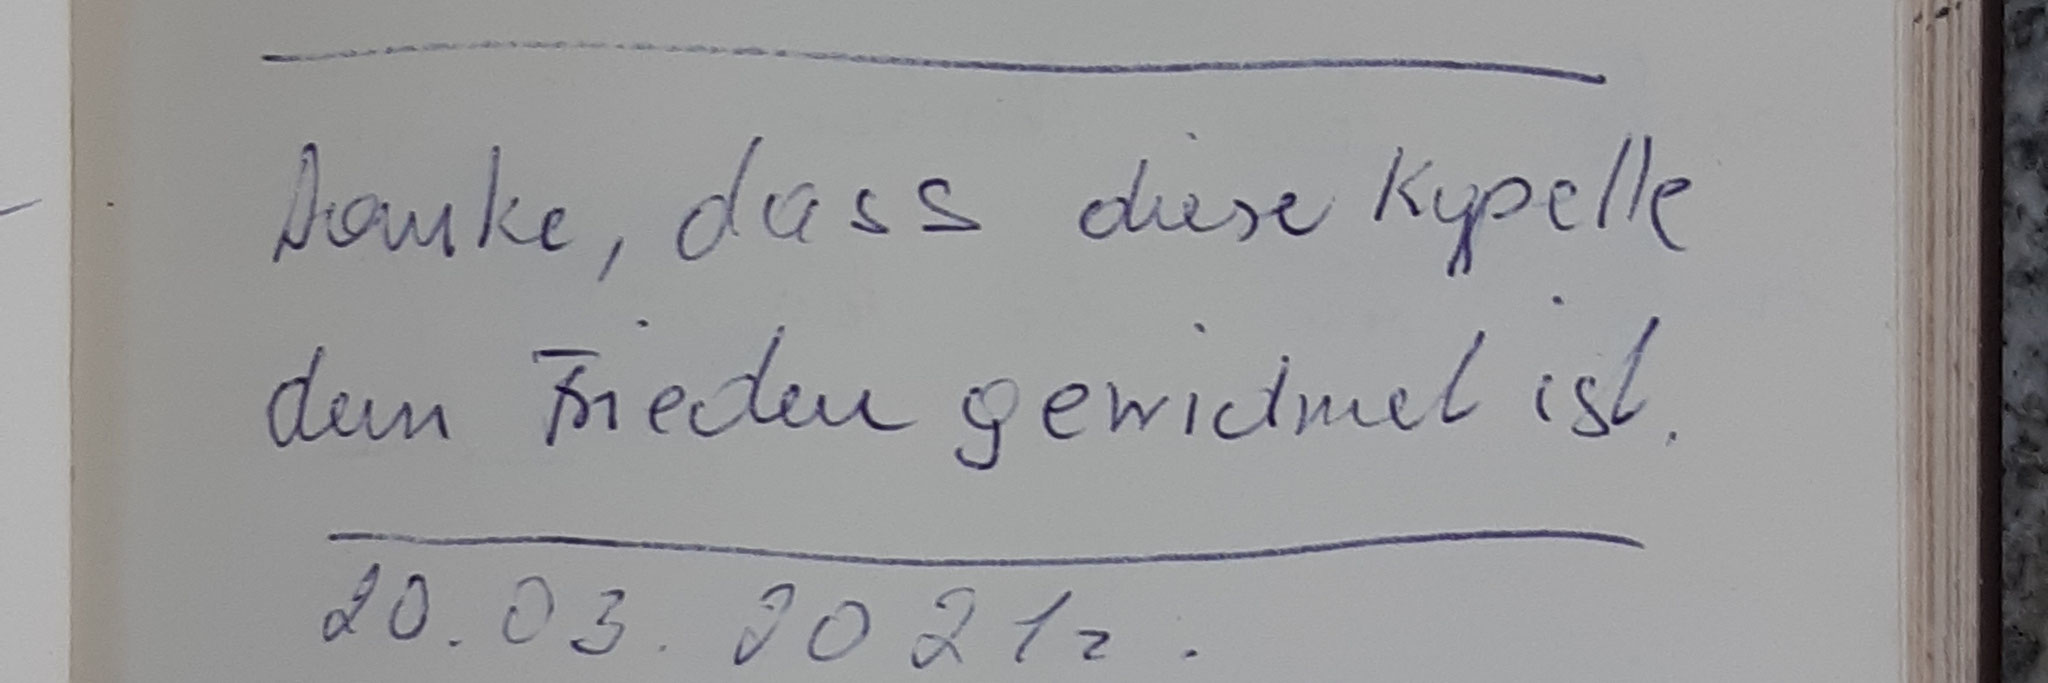 Danke, dass diese Kapelle
dem Frieden gewidmet ist.
20.03.2021г.